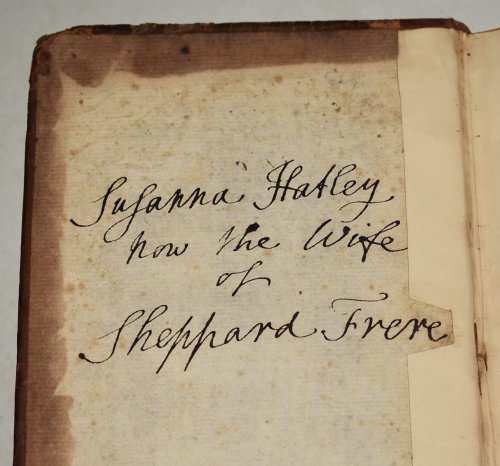 Susanna Hatley
now the Wife
of
Sheppard Frere